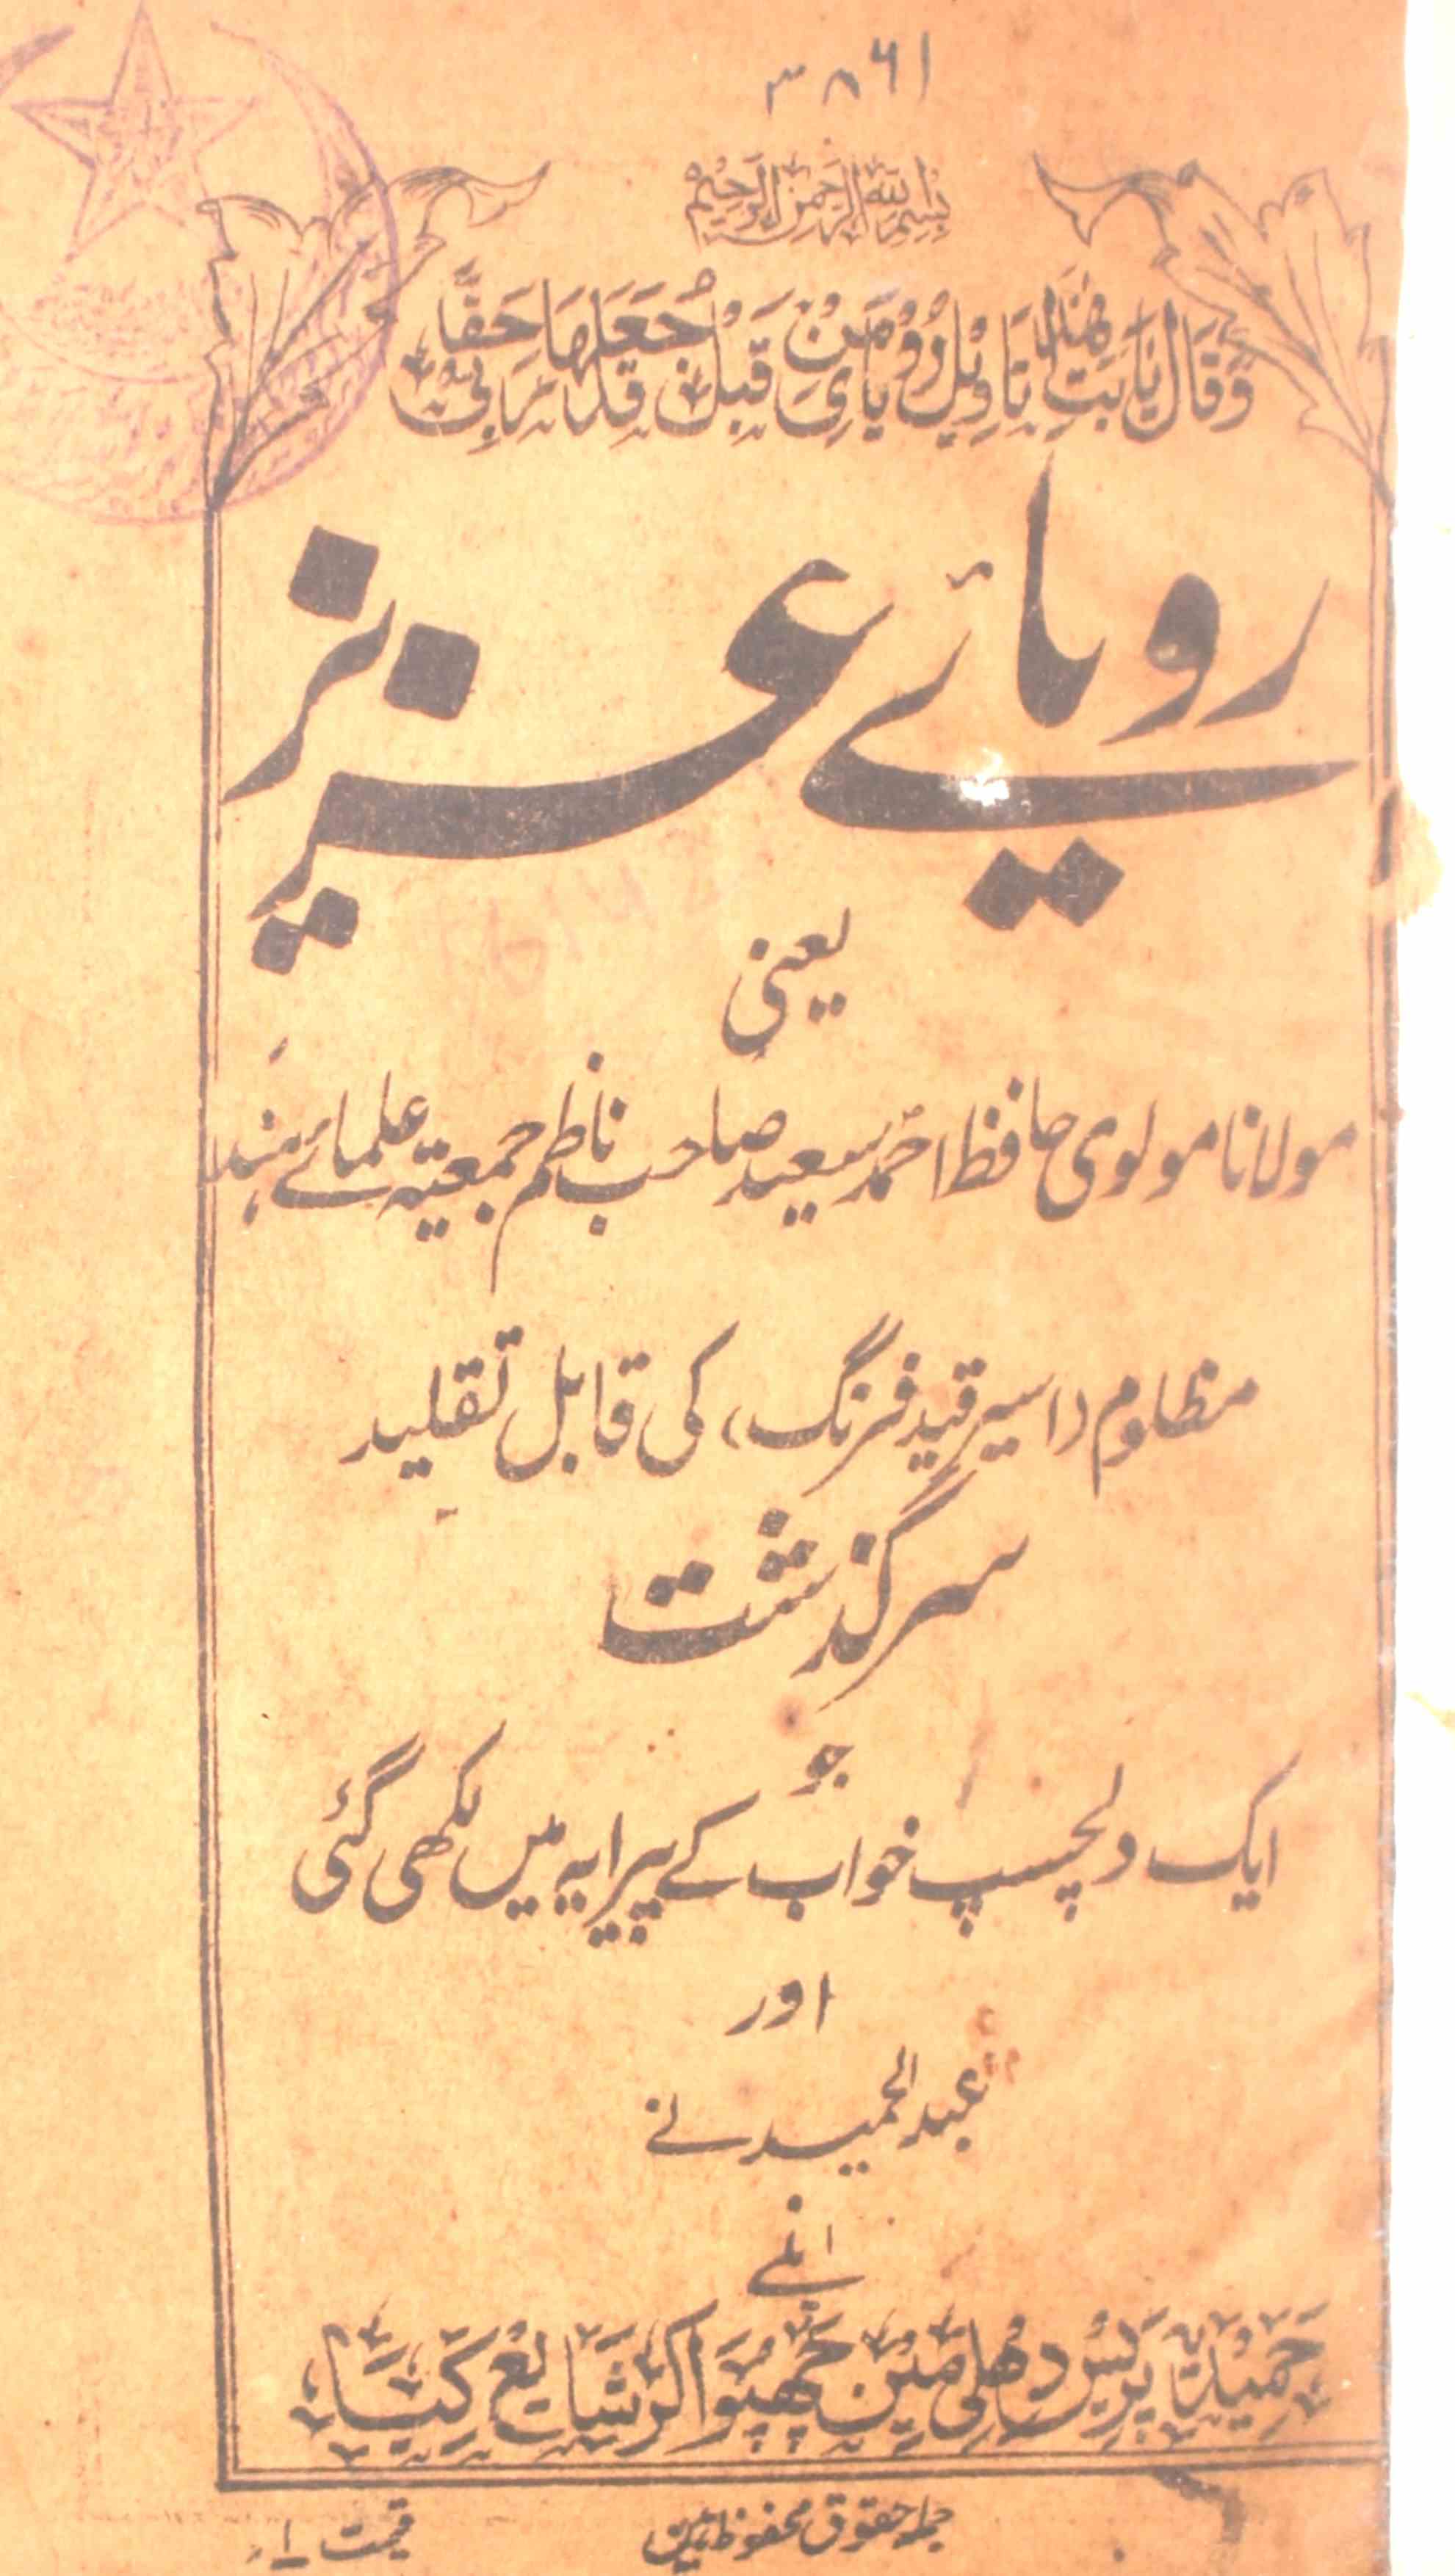 ۳۸۶۱
بِسْمِ اللّٰهِ الرَّحْمٰنِ الرَّحِيْمِ
وَقَالَ يَا بَتِ هٰذَا تَاوِيْلُ رُوْيَاىَ مِنْ قَبْلُ قَدْ جَعَلَهَا رَبِّىْ حَقًّا
رویائے عزیز
یعنی
مولانا مولوی حافظ احمد سعید صاحب ناظم جمعیۃ علمائے ہند
مظلوم (اسیر قید فرنگ) کی قابل تقلید
سرگذشت
جو
ایک دلچسپ خواب کے پیرایہ میں لکھی گئی
اور
عبد الحمید نے
اپنے
حمیدیہ پریس دھلی میں چھپوا کر شایع کیا
جملہ حقوق محفوظ ہیں
قیمت ۱؍